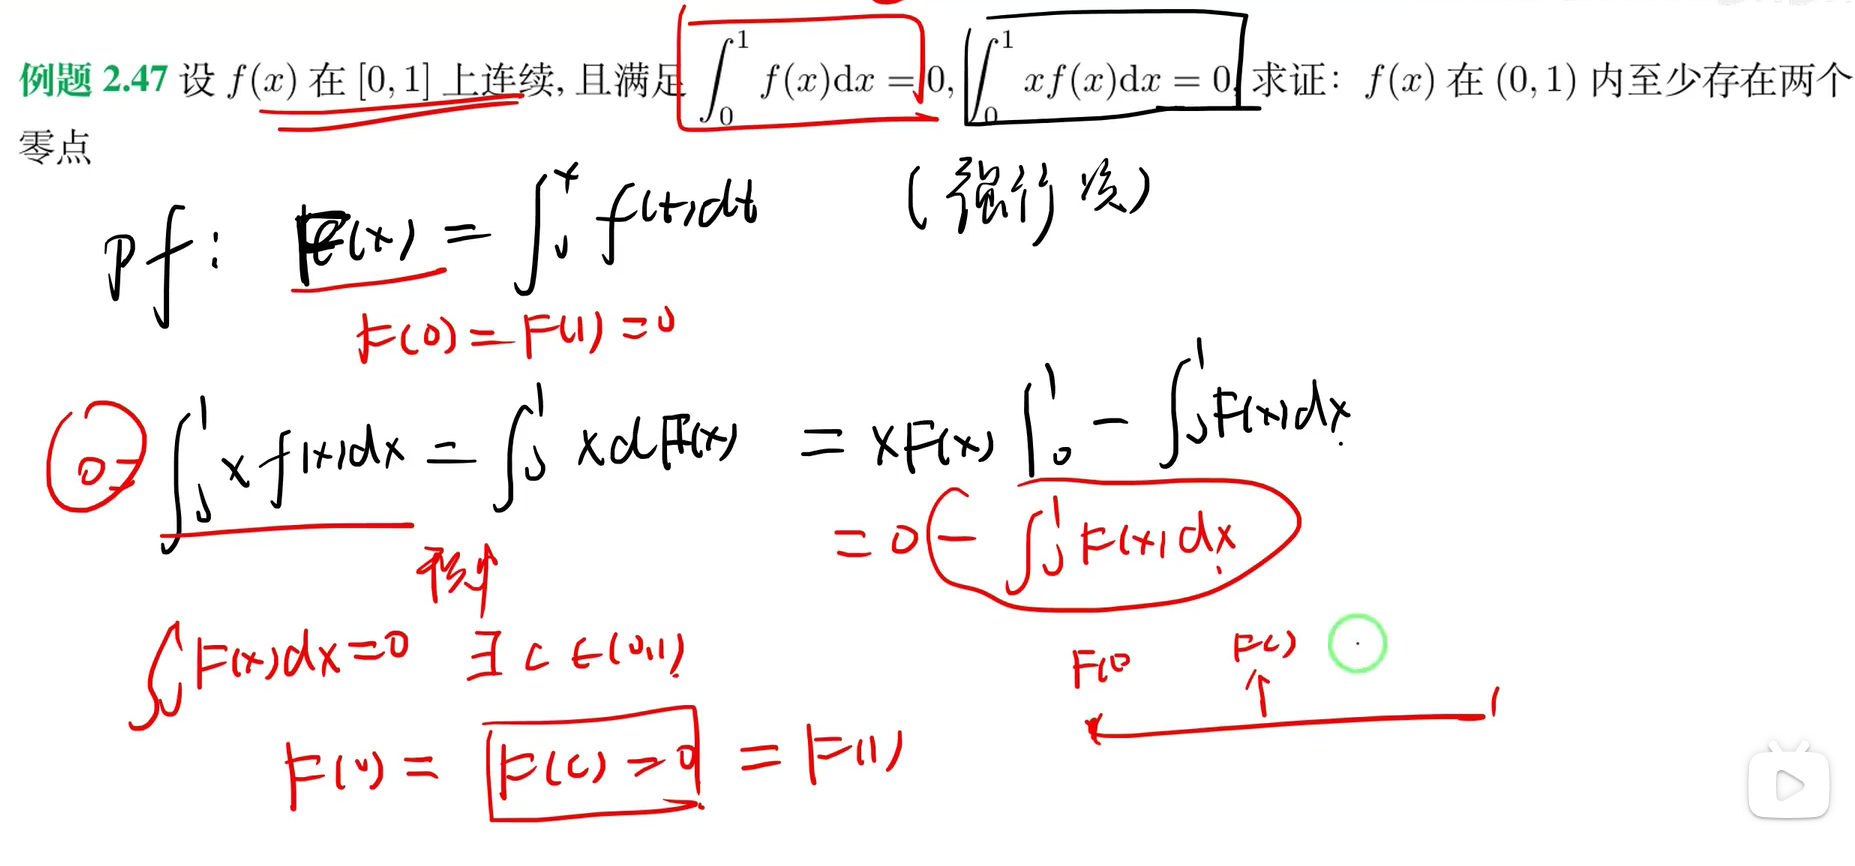 例题 2.47 设 f(x) 在 [0, 1] 上连续, 且满足 ∫₀¹ f(x)dx = 0, ∫₀¹ xf(x)dx = 0, 求证: f(x) 在 (0, 1) 内至少存在两个
零点
Pf: F(x) = ∫₀ˣ f(t)dt (强行)
F(0) = F(1) = 0
0 = ∫₀¹ x f(x)dx = ∫₀¹ x dF(x) = xF(x) |₀¹ - ∫₀¹ F(x)dx
= 0 - ∫₀¹ F(x)dx
∫₀¹ F(x)dx = 0 ∃ c ∈ (0,1)
F(0 F(c) 1
F(0) = F(c) = 0 = F(1)